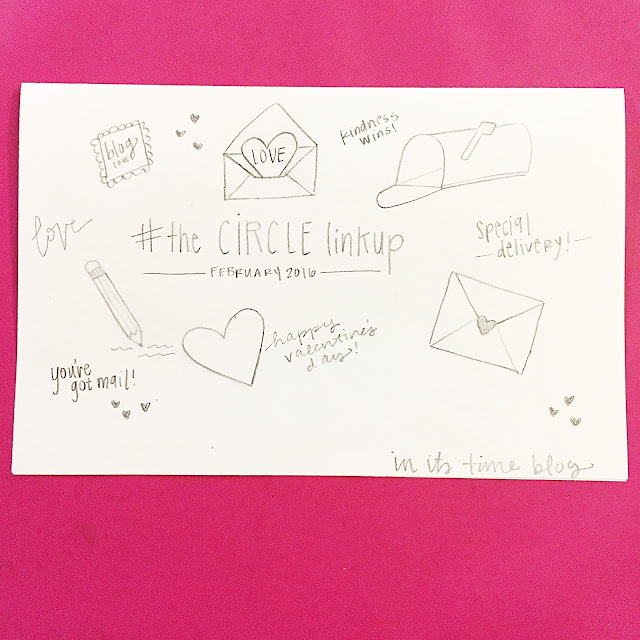 blog
LOVE
LOVE
kindness
wins!
love
#the CIRCLE linkup
FEBRUARY 2016
special
delivery!
happy
valentine's
day!
you've
got mail!
in its time blog